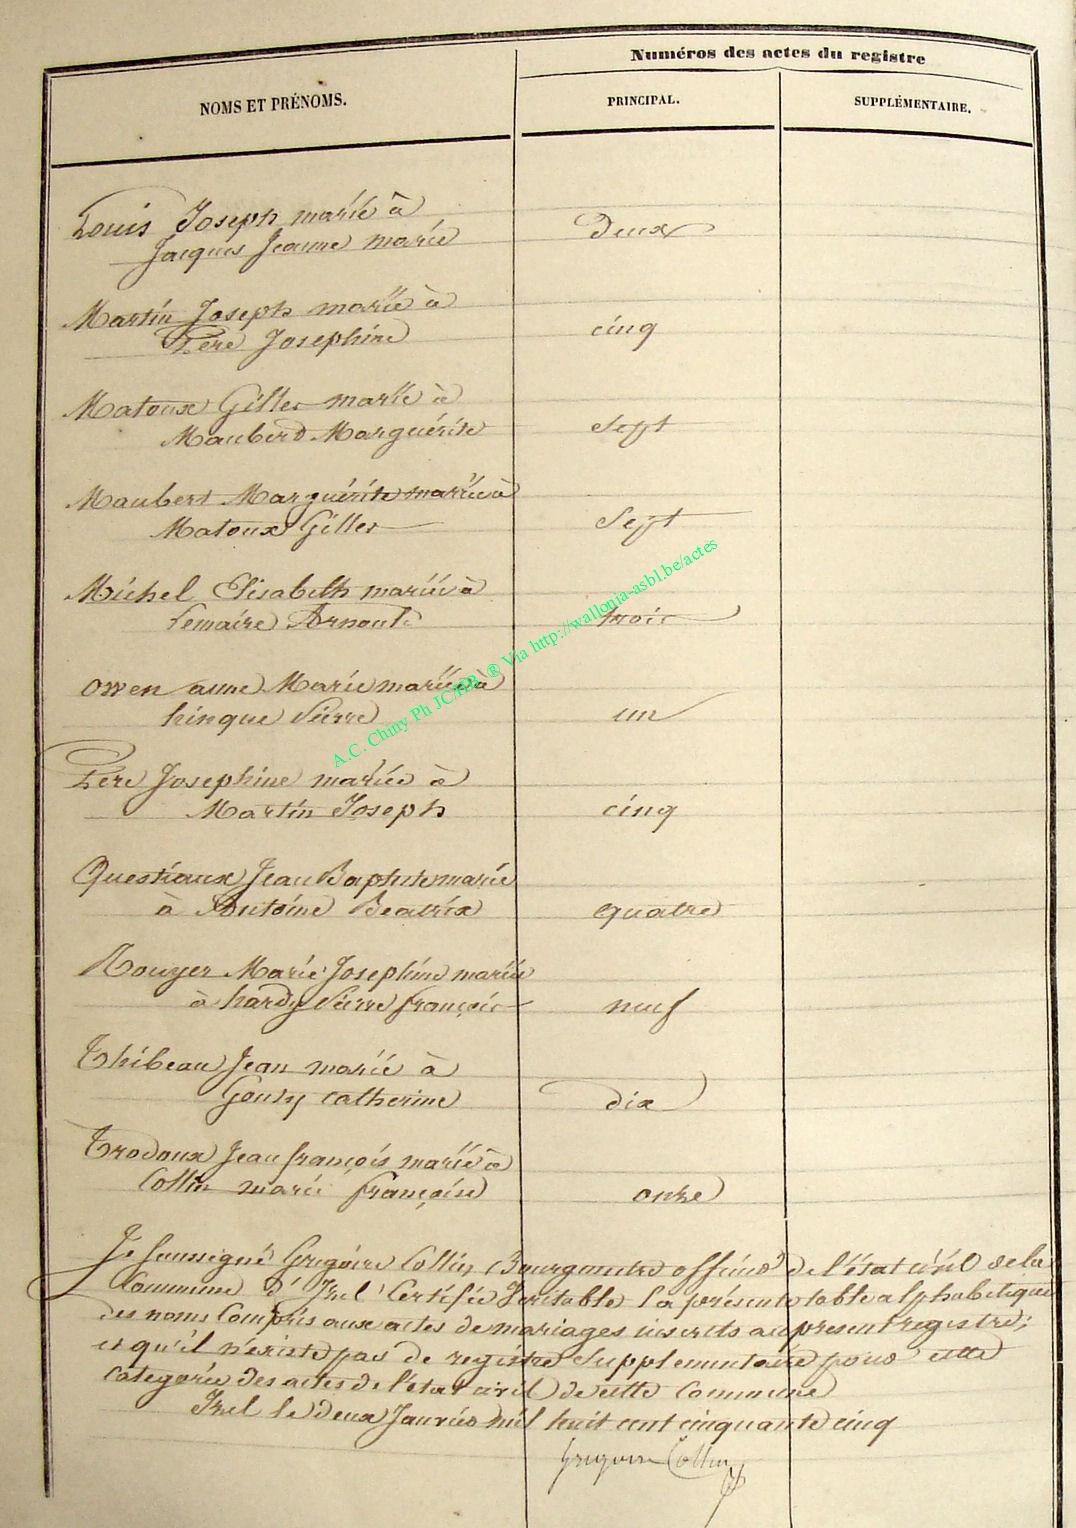 Numéros des actes du registre
NOMS ET PRÉNOMS. PRINCIPAL. SUPPLÉMENTAIRE.
Louis Joseph marié à
Jacques Jeanne marie Deux
Martin Joseph mariée à
Père Josephine cinq
Matoux Gilles marié à
Maubert Marguérite Sept
Maubert Marguérite mariée à
Matoux Gilles Sept
Michel Elisabeth mariée à
Lemaire Arnould trois
Owen anne Marie mariée à
hinque Pierre un
Père Josephine mariée à
Martin Joseph cinq
Questiaux Jean Baptiste marié
à Antoine Beatrix quatre
Rouyer Marie Josephine mariée
à hardy Pierre françois neuf
Thibeau Jean marié à
Goury catherine dix
Trodoux Jean françois marié à
Collin marie françoise onze
Je Soussigné Grégoire Collin, Bourgmestre officier de l'état civil de la
Commune d'Izel Certifie Veritable la présente table alphabétique
des noms Compris aux actes de mariages inscrits au present registre;
et qu'il n'existe pas de registre Supplementaire pour cette
categorie des actes de l'état civil de cette Commune
Izel le deux Janvier mil huit cent cinquante cinq
Grégoire Collin
A.C. Chiny Ph JCHB ® Via http://wallonia-asbl.be/actes